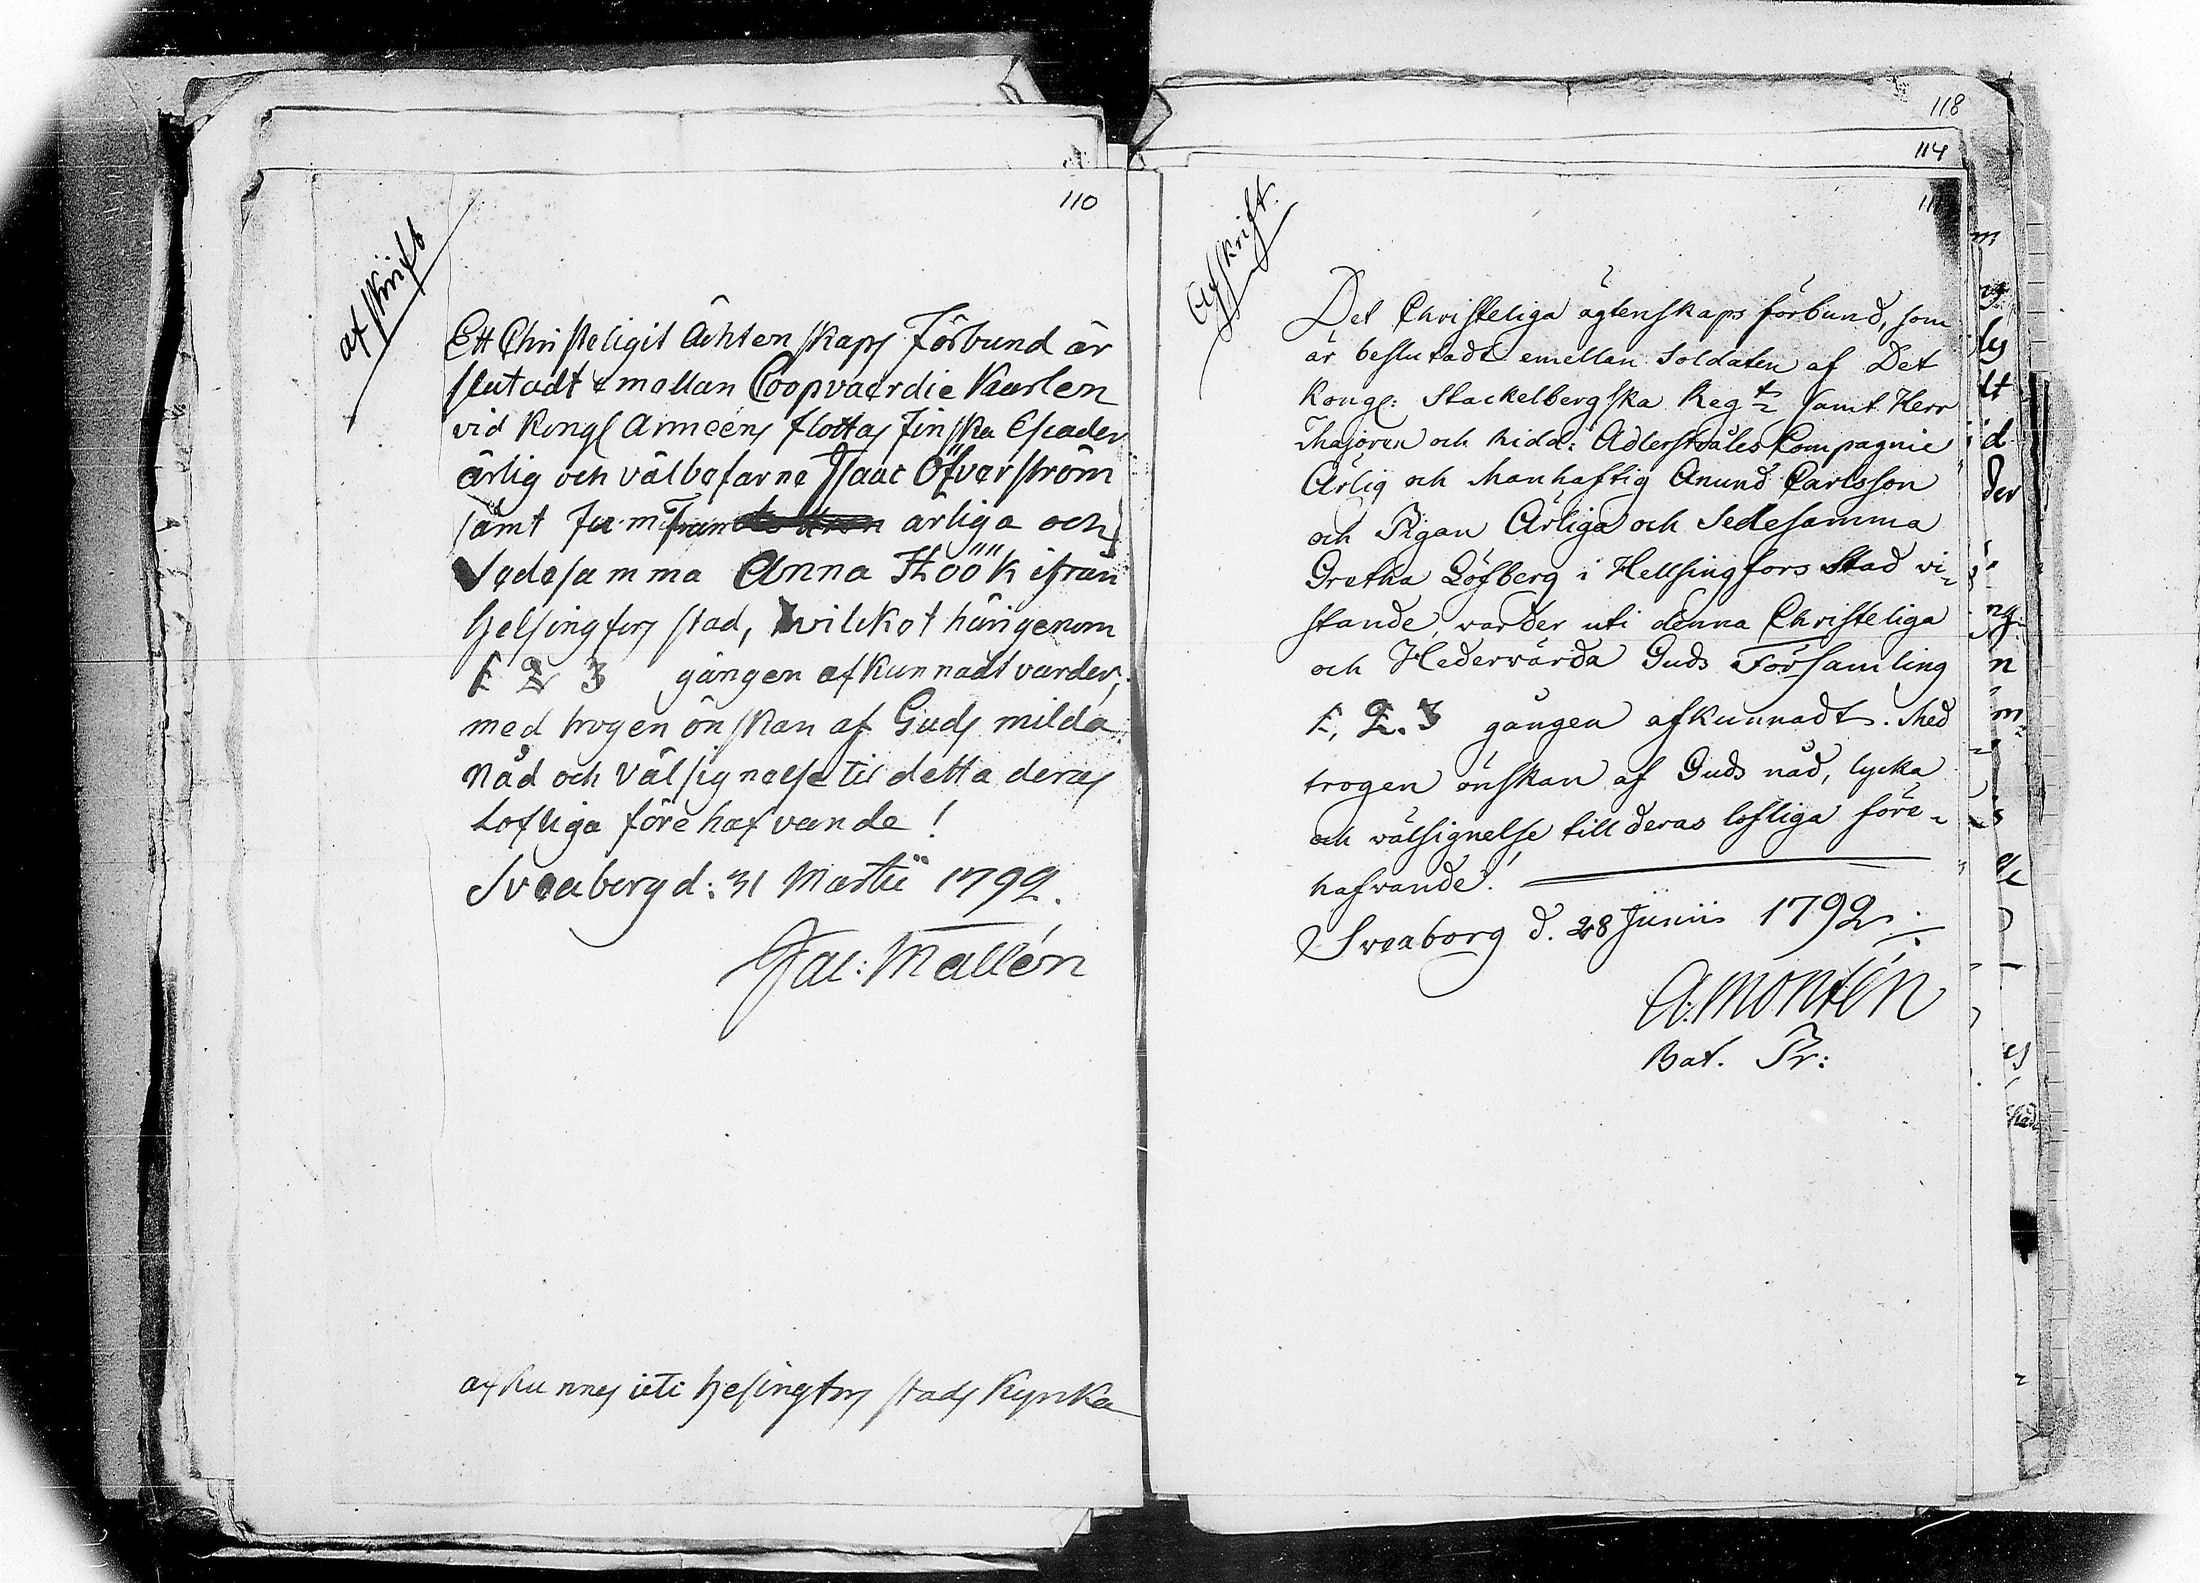 110
afskrift
Ett Christeligit Ächtenskaps Förbund är
slutadt emellan Coopvaerdie Karlen
vid Kongl Armeens flottas Finska Escader
ärlig och välbefarne Isaac Öfverström
samt Jumfrun ärliga och
Sedesamma Anna Höök ifrån
Helsingfors stad, hvilket härigenom
1 2 3 gången afkunnadt varder,
med trogen önskan af Guds milda
Nåd och Välsignelse til detta deras
Lofliga förehafvande!
Sveaborg d: 31 Martii 1792.
Jac: Mallén
afkunnes uti Helsingfors stads Kyrka
118
114
Afskrift.
Det Christeliga ägtenskaps förbund, som
är beslutadt emellan Soldaten af Det
Kongl: Stackelbergska Regtz samt Herr
Majoren och Ridd: Adlerstråles Compagnie
Ärlig och Manhaftig Anund Carlsson
och Pigan Ärliga och Sedesamma
Gretha Löfberg i Hellsingfors Stad vi-
stande, varder uti denna Christeliga
och Hedervärda Guds Församling
1, 2. 3 gången afkunnadt. Med
trogen önskan af Guds nåd, lycka
och välsignelse till deras lofliga före-
hafvande!
Sveaborg d. 28 Junii 1792
A: Montén
Bat. Pr: